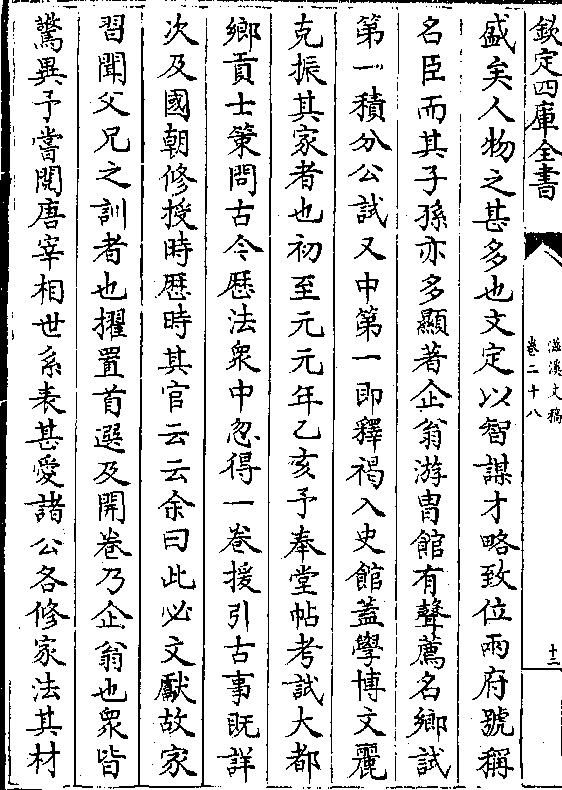 欽定四庫全書
滋溪文稿
卷二十八
十三
盛矣人物之甚多也文定以智謀才略致位兩府號稱
名臣而其子孫亦多顯著企翁游胄館有聲薦名鄉試
第一積分公試又中第一即釋褐入史館蓋學博文麗
克振其家者也初至元元年乙亥予奉堂帖考試大都
鄉貢士策問古今厯法衆中忽得一卷援引古事既詳
次及國朝修授時厯時其官云云余曰此必文獻故家
習聞父兄之訓者也擢置首選及開卷乃企翁也衆皆
驚異予嘗閱唐宰相世系表甚愛諸公各修家法其材